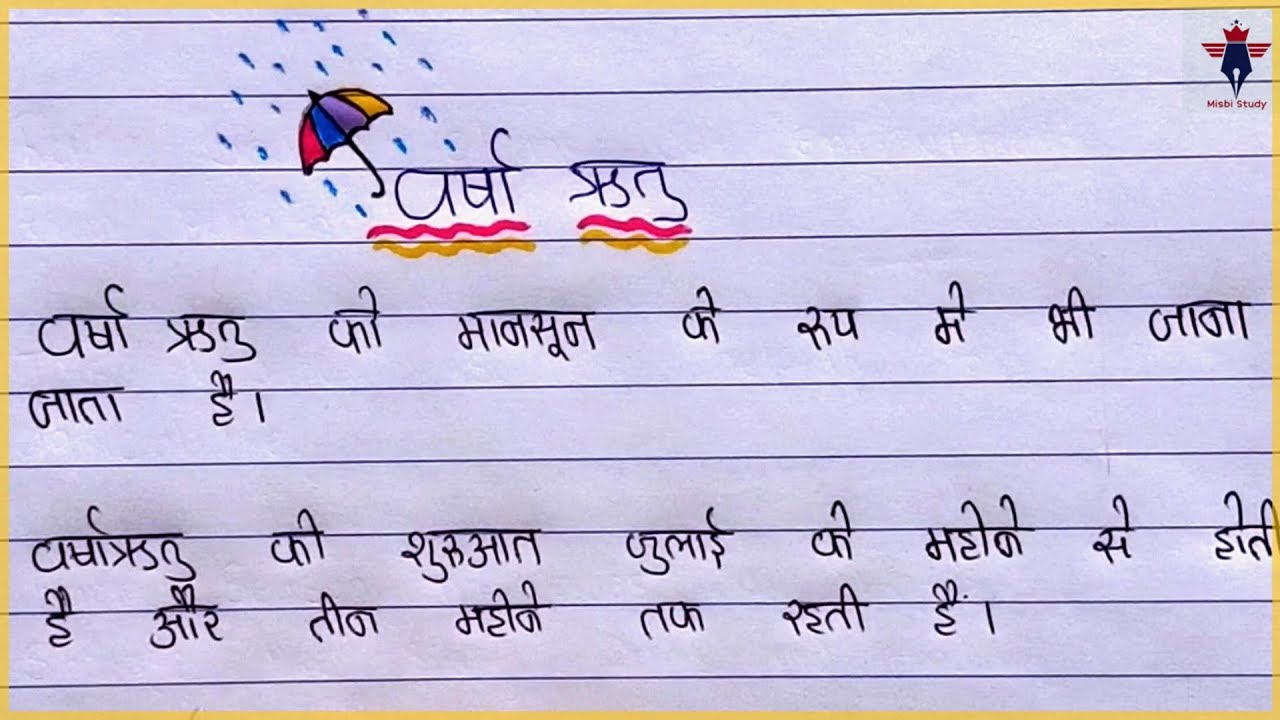 Misbi Study
वर्षा ऋतु
वर्षा ऋतु को मानसून के रूप मे भी जाना
जाता है।
वर्षाऋतु की शुरुआत जुलाई के महीने से होती
है और तीन महीने तक रहती हैं।